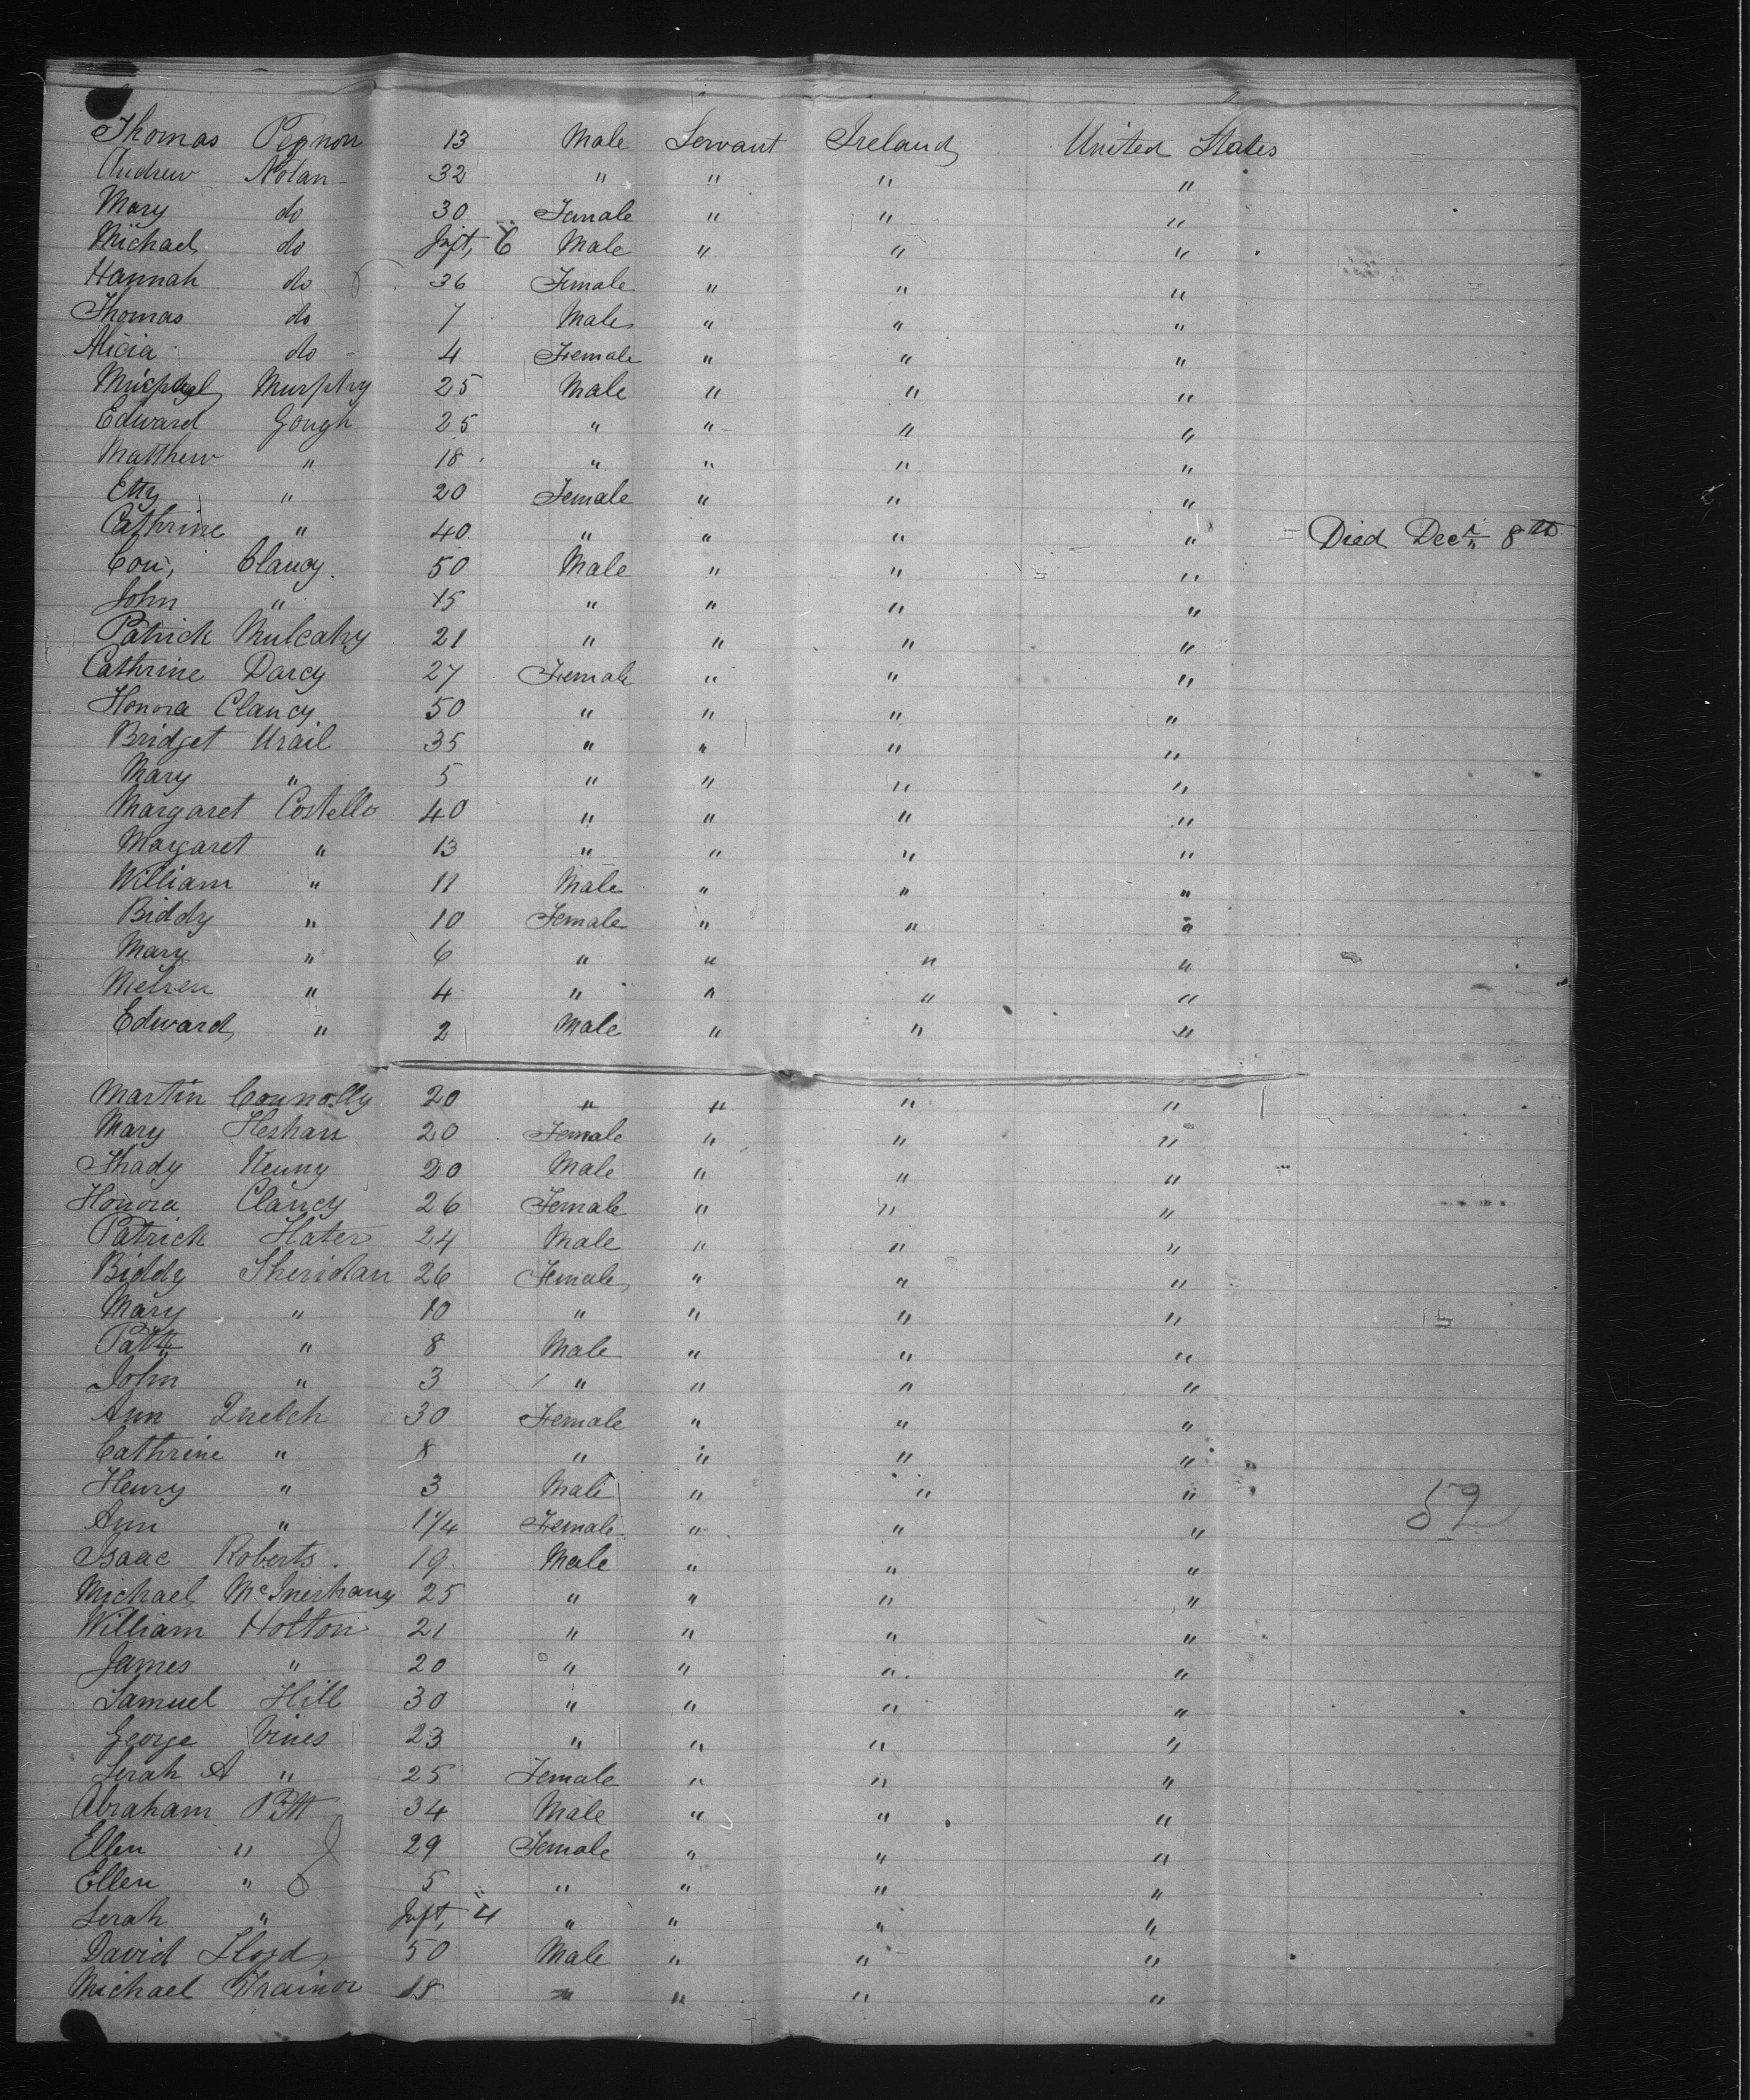 Thomas Pegnon 13 Male Servant Ireland United States
Andrew Nolan 32 " " " "
Mary do 30 Female " " "
Michael do Inft, 6 Male " " "
Hannah do 36 Female " " "
Thomas do 7 Male " " "
Alicia do 4 Female " " "
Michael Murphy 25 Male " " "
Edward Gough 25 " " " "
Matthew " 18 " " " "
Etty " 20 Female " " "
Cathrine " 40 " " " " Died Decr 8th
Con, Clancy 50 Male " " "
John " 45 " " " "
Patrick Mulcahy 21 " " " "
Cathrine Darcy 27 Female " " "
Honora Clancy 50 " " " "
Bridget Urail 35 " " " "
Mary " 5 " " " "
Margaret Costello 40 " " " "
Margaret " 13 " " " "
William " 11 Male " " "
Biddy " 10 Female " " "
Mary " 6 " " " "
" 4 " " " "
Edward " 2 Male " " "
Martin Connolly 20 " " " "
Mary 20 Female " " "
Thady 20 Male " " "
Honora Clancy 26 Female " " "
Patrick Hater 24 Male " " "
Biddy Sheridan 26 Female " " "
Mary " 10 " " " "
Patk " 8 Male " " "
John " 3 " " " "
Ann Quelch 30 Female " " "
Cathrine " 8 " " " "
Henry " 3 Male " " "
Ann " 1 1/4 Female " " " 52
Isaac Roberts 19 Male " " "
Michael McInerhany 25 " " " "
William Holton 21 " " " "
James " 20 " " " "
Samuel Hill 30 " " " "
George Vines 23 " " " "
Serah A " 25 Female " " "
Abraham Pitt 34 Male " " "
Ellen " 29 Female " " "
Ellen " 5 " " " "
Serah " Inft, 4 " " " "
David Lloyd 50 Male " " "
Michael Trainor 18 " " " "